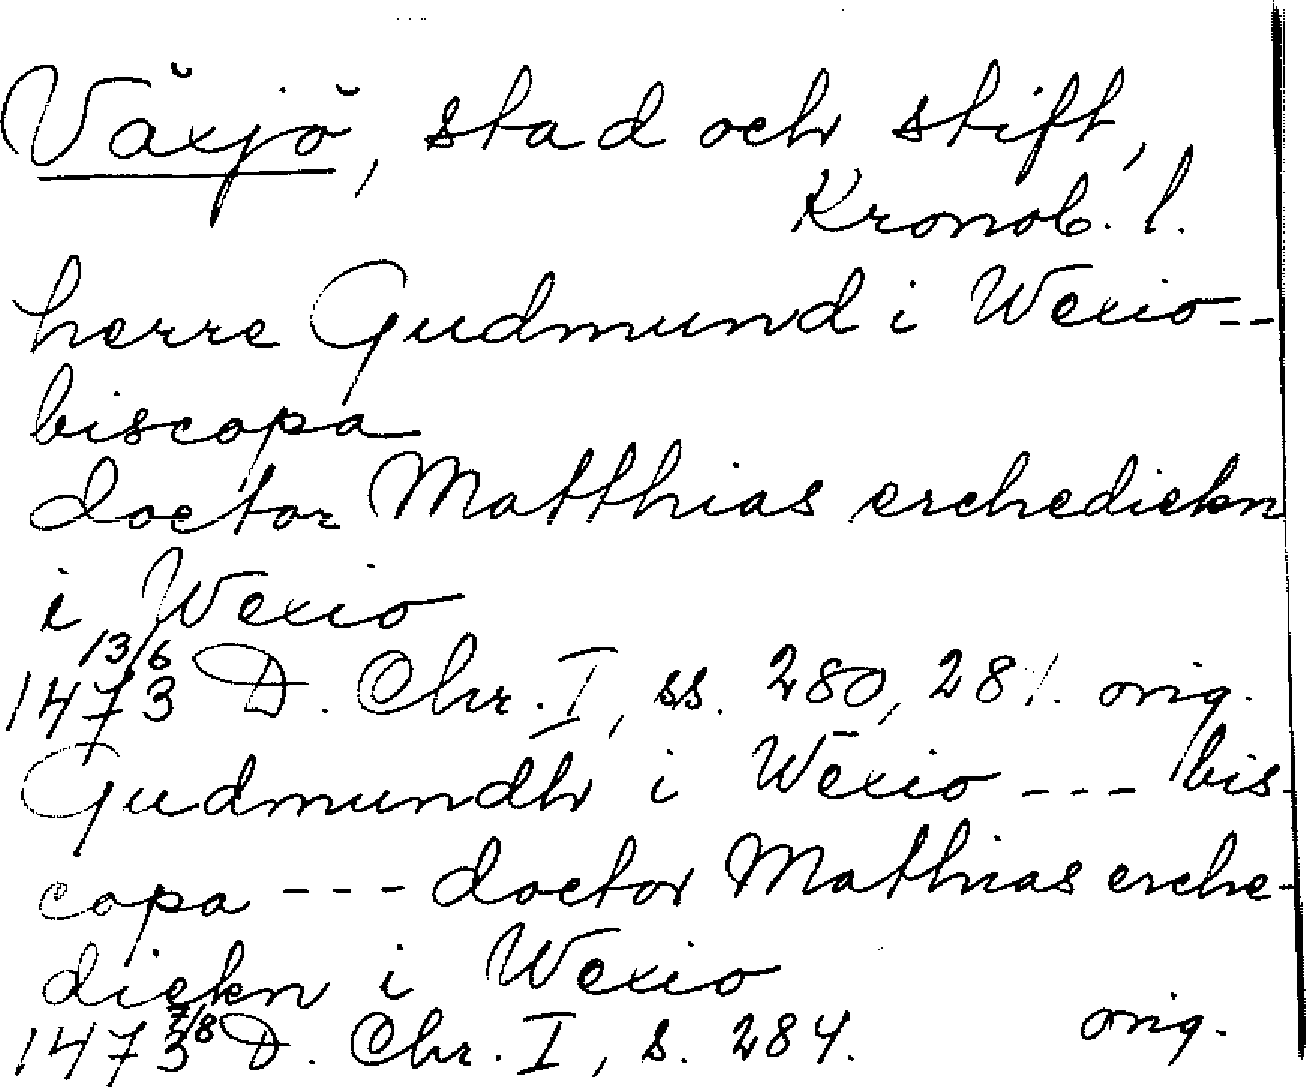 Växjö, stad och stift,
Kronob. l.
herre Gudmund i Wexio --
biscopa
doctor Matthias erchediekn
i Wexio
1473 13/6 D. Chr. I, ss. 280, 281. orig.
Gudmundh i Wexio --- bis-
copa --- doctor Mathias erche-
diekn i Wexio
1473 7/8 D. Chr. I, s. 284. orig.